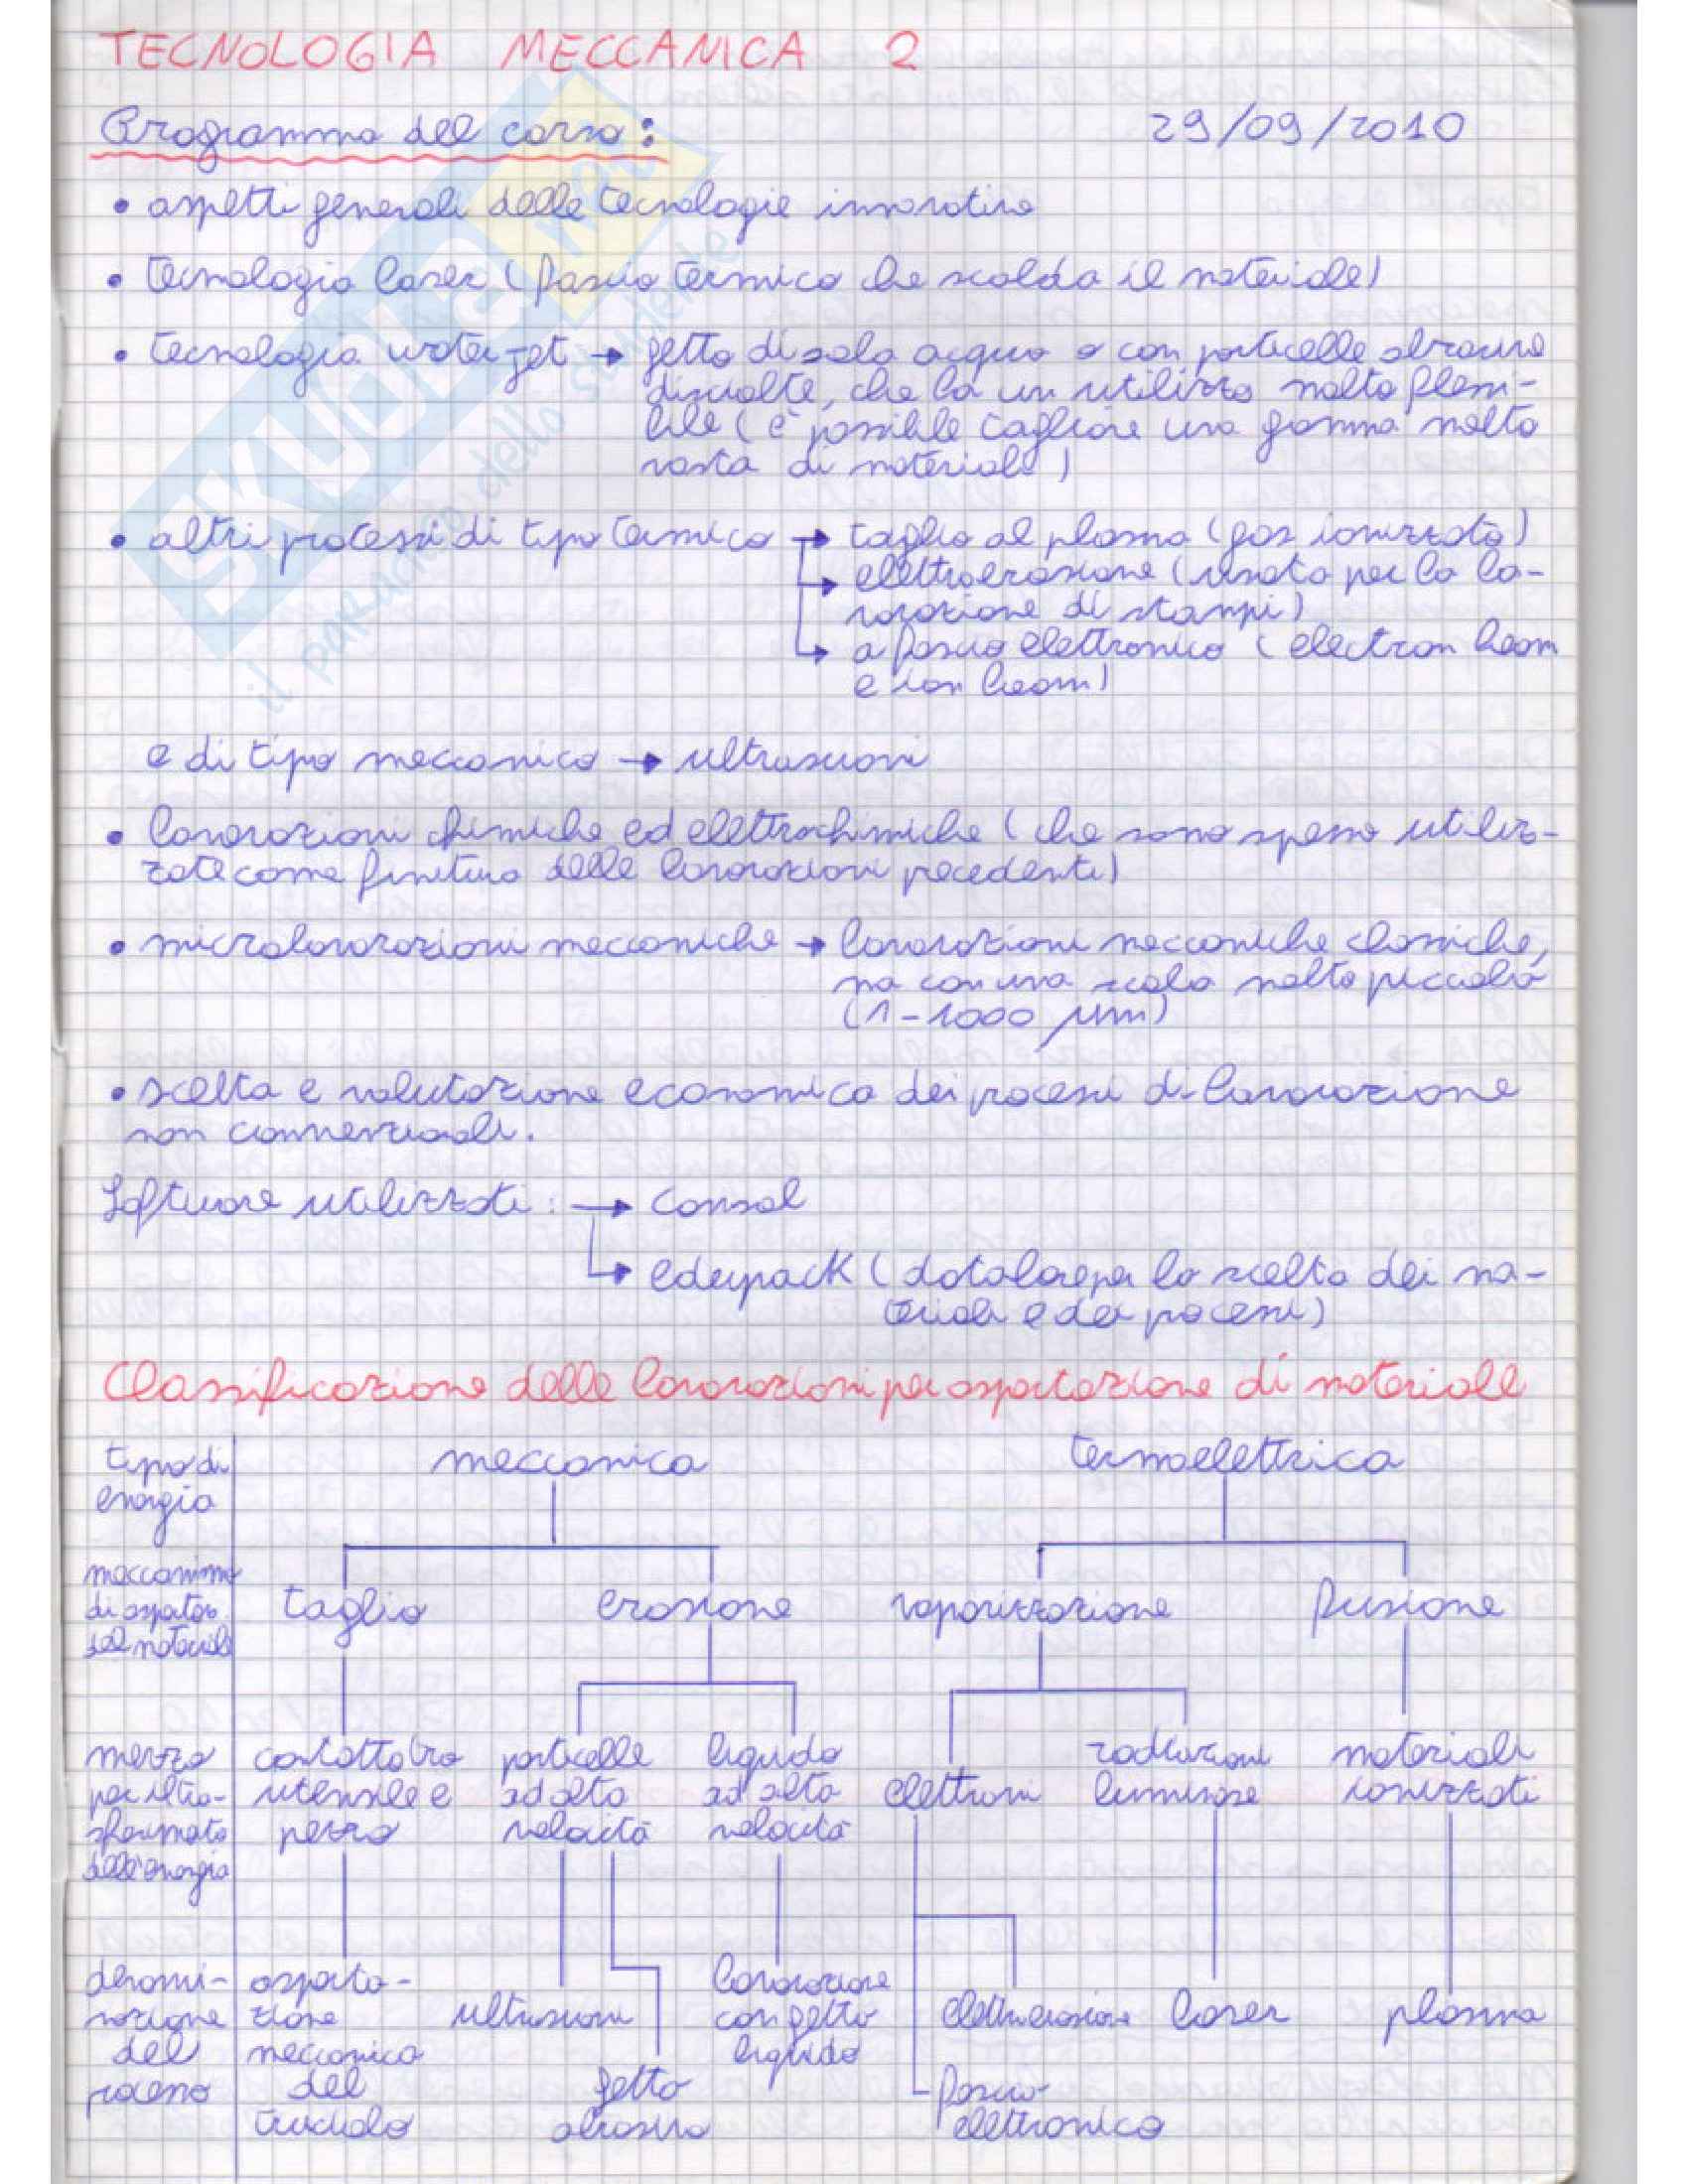 TECNOLOGIA MECCANICA 2
Programma del corso: 29/09/2010
• aspetti generali delle tecnologie innovative
• tecnologia laser (fascio termico che scalda il materiale)
• tecnologia water jet → getto di sola acqua o con particelle abrasive
disciolte, che ha un utilizzo molto flessi-
bile (è possibile tagliare una gamma molto
vasta di materiali)
• altri processi di tipo termico → taglio al plasma (gas ionizzato)
→ elettroerosione (usata per la la-
vorazione di stampi)
→ a fascio elettronico (electron beam
e ion beam)
e di tipo meccanico → ultrasuoni
• lavorazioni chimiche ed elettrochimiche (che sono spesso utiliz-
zate come finitura delle lavorazioni precedenti)
• microlavorazioni meccaniche → lavorazioni meccaniche classiche,
ma con una scala molto piccola
(1-1000 μm)
• scelta e valutazione economica dei processi di lavorazione
non convenzionali.
Software utilizzati: → comsol
→ edupack (database per la scelta dei ma-
teriali e dei processi)
Classificazione delle lavorazioni per asportazione di materiale
tipo di meccanica termoelettrica
energia
meccanismo
di asportaz. taglio erosione vaporizzazione fusione
del materiale
mezzo contatto tra particelle liquido radiazioni materiali
per il tra- utensile e ad alta ad alta elettroni luminose ionizzati
sferimento pezzo velocità velocità
dell'energia
denomi- asporta- lavorazione
nazione zione ultrasuoni con getto elettroerosione laser plasma
del meccanica liquido
processo del getto fascio
truciolo abrasivo elettronico
SKUOLA.net
il paradiso dello studente